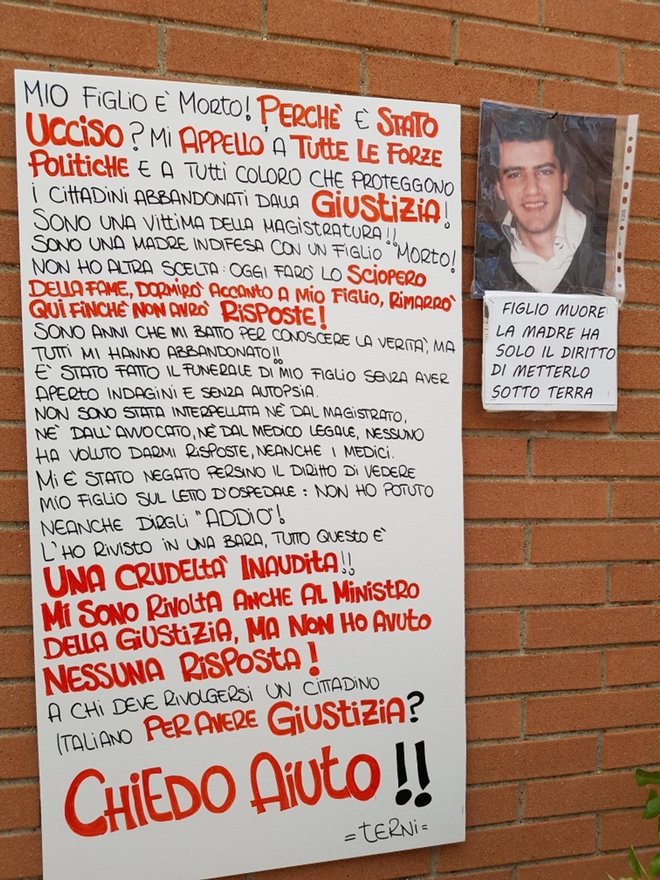 MIO FIGLIO È MORTO! PERCHÈ È STATO
UCCISO? MI APPELLO A TUTTE LE FORZE
POLITICHE E A TUTTI COLORO CHE PROTEGGONO
I CITTADINI ABBANDONATI DALLA GIUSTIZIA!
SONO UNA VITTIMA DELLA MAGISTRATURA!!
SONO UNA MADRE INDIFESA CON UN FIGLIO "MORTO!
NON HO ALTRA SCELTA: OGGI FARÒ LO SCIOPERO
DELLA FAME, DORMIRÒ ACCANTO A MIO FIGLIO, RIMARRÒ
QUI FINCHÈ NON AVRÒ RISPOSTE!
SONO ANNI CHE MI BATTO PER CONOSCERE LA VERITÀ, MA
TUTTI MI HANNO ABBANDONATO!!
È STATO FATTO IL FUNERALE DI MIO FIGLIO SENZA AVER
APERTO INDAGINI E SENZA AUTOPSIA.
NON SONO STATA INTERPELLATA NÈ DAL MAGISTRATO,
NÈ DALL'AVVOCATO, NÈ DAL MEDICO LEGALE, NESSUNO
HA VOLUTO DARMI RISPOSTE, NEANCHE I MEDICI.
MI È STATO NEGATO PERSINO IL DIRITTO DI VEDERE
MIO FIGLIO SUL LETTO D'OSPEDALE: NON HO POTUTO
NEANCHE DIRGLI "ADDIO"!
L'HO RIVISTO IN UNA BARA, TUTTO QUESTO È
UNA CRUDELTÀ INAUDITA!!
MI SONO RIVOLTA ANCHE AL MINISTRO
DELLA GIUSTIZIA, MA NON HO AVUTO
NESSUNA RISPOSTA!
A CHI DEVE RIVOLGERSI UN CITTADINO
ITALIANO PER AVERE GIUSTIZIA?
CHIEDO AIUTO!!
=TERNI=
FIGLIO MUORE
LA MADRE HA
SOLO IL DIRITTO
DI METTERLO
SOTTO TERRA